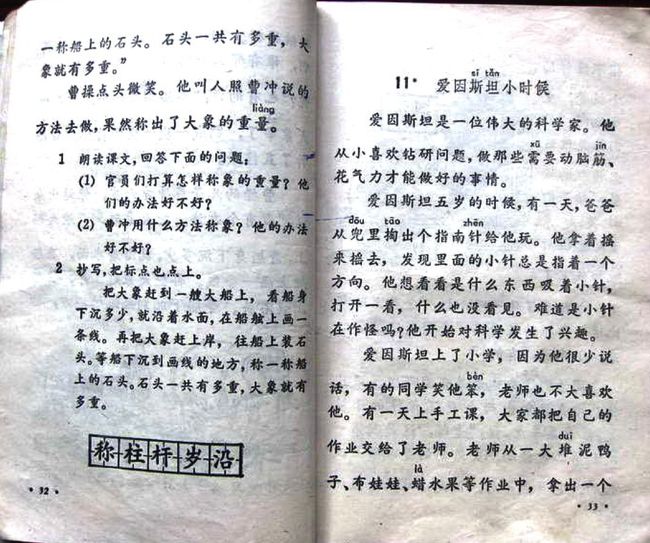 一称船上的石头。石头一共有多重，大
象就有多重。”
曹操点头微笑。他叫人照曹冲说的
liàng
方法去做，果然称出了大象的重量。
1 朗读课文，回答下面的问题：
(1) 官员们打算怎样称象的重量？他
们的办法好不好？
(2) 曹冲用什么方法称象？他的办法
好不好？
2 抄写，把标点也点上。
把大象赶到一艘大船上，看船身
下沉多少，就沿着水面，在船舷上画一
条线。再把大象赶上岸，往船上装石
头。等船下沉到画线的地方，称一称船
上的石头。石头一共有多重，大象就有
多重。
称柱杆岁沿
·32·
sī tǎn
11* 爱因斯坦小时候
爱因斯坦是一位伟大的科学家。他
xū jīn
从小喜欢钻研问题，做那些需要动脑筋、
花气力才能做好的事情。
爱因斯坦五岁的时候，有一天，爸爸
dōu tāo zhēn
从兜里掏出个指南针给他玩。他拿着摇
来摇去，发现里面的小针总是指着一个
方向。他想看看是什么东西吸着小针，
打开一看，什么也没看见。难道是小针
在作怪吗？他开始对科学发生了兴趣。
爱因斯坦上了小学，因为他很少说
bèn
话，有的同学笑他笨，老师也不大喜欢
他。有一天上手工课，大家都把自己的
duī
作业交给了老师。老师从一大堆泥鸭
là
子、布娃娃、蜡水果等作业中，拿出一个
·33·